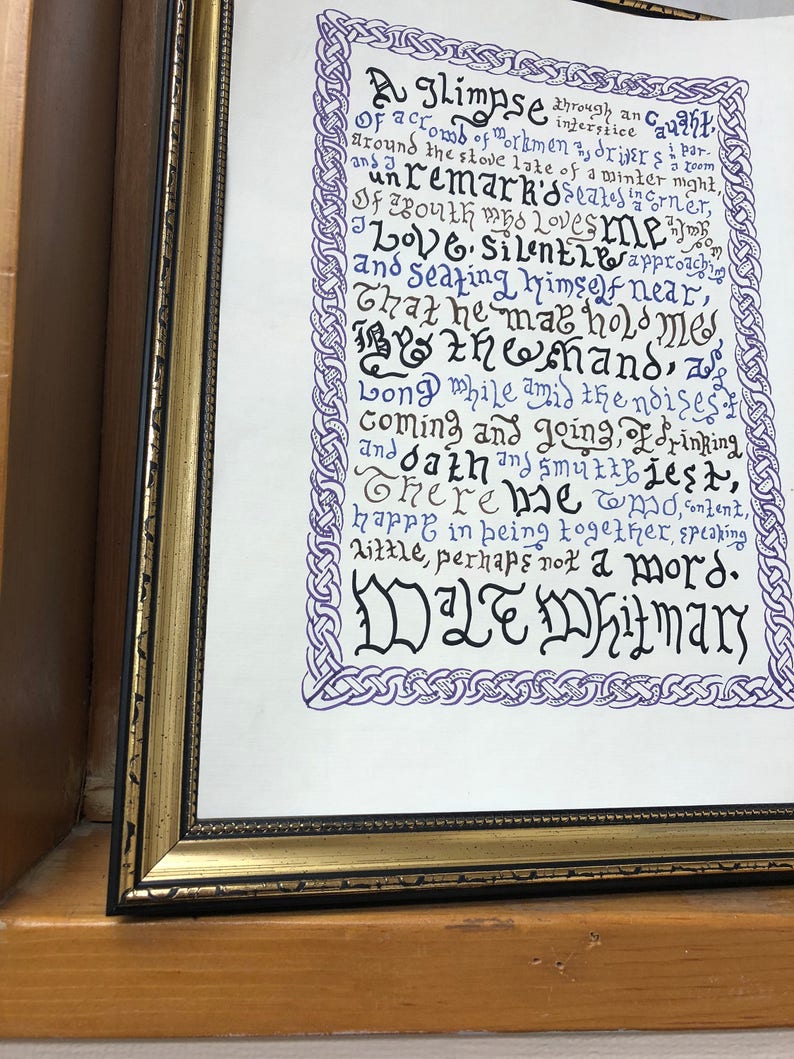 A glimpse through an interstice caught,
Of a crowd of workmen and drivers in a bar-room
around the stove late of a winter night,
and I unremark'd seated in a corner,
Of a youth who loves me and whom
I Love, silently approaching
and seating himself near,
That he may hold me
By the hand, a
Long while amid the noises of
coming and going, of drinking
and oath and smutty jest,
There we two, content,
happy in being together, speaking
little, perhaps not a word.
Walt Whitman